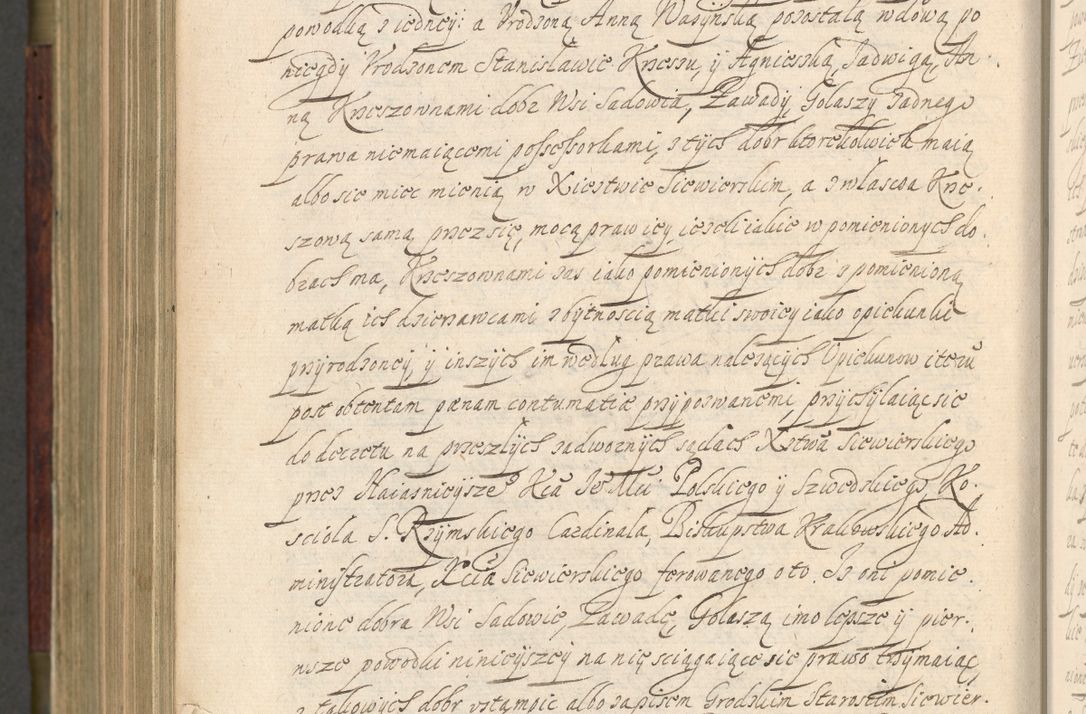 powodką z iedney: a Vrodzoną Anną Wasynską pozostałą wdową po
niegdy Vrodzonem Stanisławie Krzeszu, ÿ Agnieszką, Jadwigą, An
ną Krzeszownami dobr Wsi Sadowia, Zawady Gołaszy żadnego
prawa niemaiącemi possessorkami, z tÿch dobr ktorekolwiek maią
albo się miec mienią w Xięstwie Siewierskim, a zwłascza Krze.
szową samą przez się, mocą praw iey, iezeli iakie w pomienionych do.
brach ma, Krzeszownami zas iako pomienionÿch dobr z pomienioną
matką ich dzierzawcami z bÿtnoscią matki swoiey iako opiekunki
przÿrodzoney ÿ inszÿch im według prawa nalezących Opiekunow iteru
post obtentam pænam contumatiæ przÿpozwanemi, przÿchÿlaiąc się
do decretu na przeszłÿch zadwornÿch sądach Xstwa Siewierskiego
przez Naiasnieysze Xcia Je Mci Polskiego ÿ Szwedzkiego, Ko.
scioła S. Rzÿmskiego Cardinala, Biskupstwa Krakowskiego Ad.
ministratora, Xcia Siewierskiego ferowanego oto. Iz oni pomie.
nione dobra Wsi Sadowie, Zawadę, Gołaszą imo lepsze ÿ pier.
wsze powodki ninieyszey na nię sciągaiące się prawo trzÿmaiąc,
z takowÿch dobr vstąmpic albo zapisem Grodzkim Starostim Siewier.